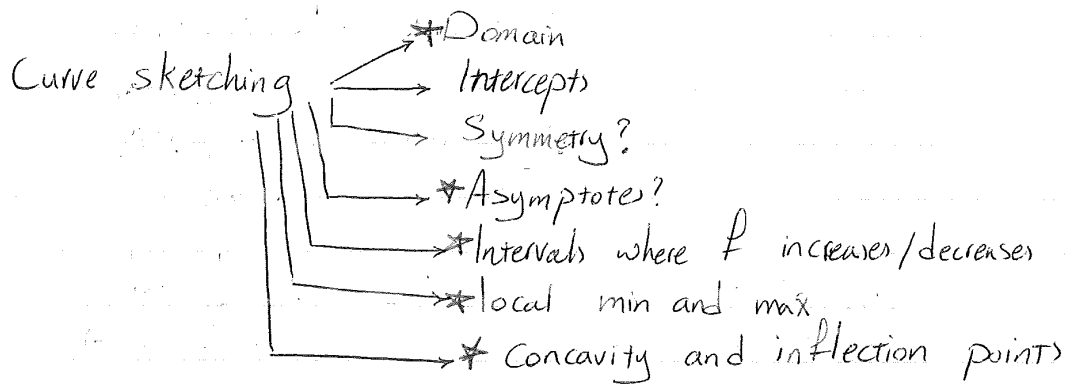 ★Domain
Curve sketching
Intercepts
Symmetry?
★Asymptotes?
★Intervals where f increases/decreases
★local min and max
★ Concavity and inflection points